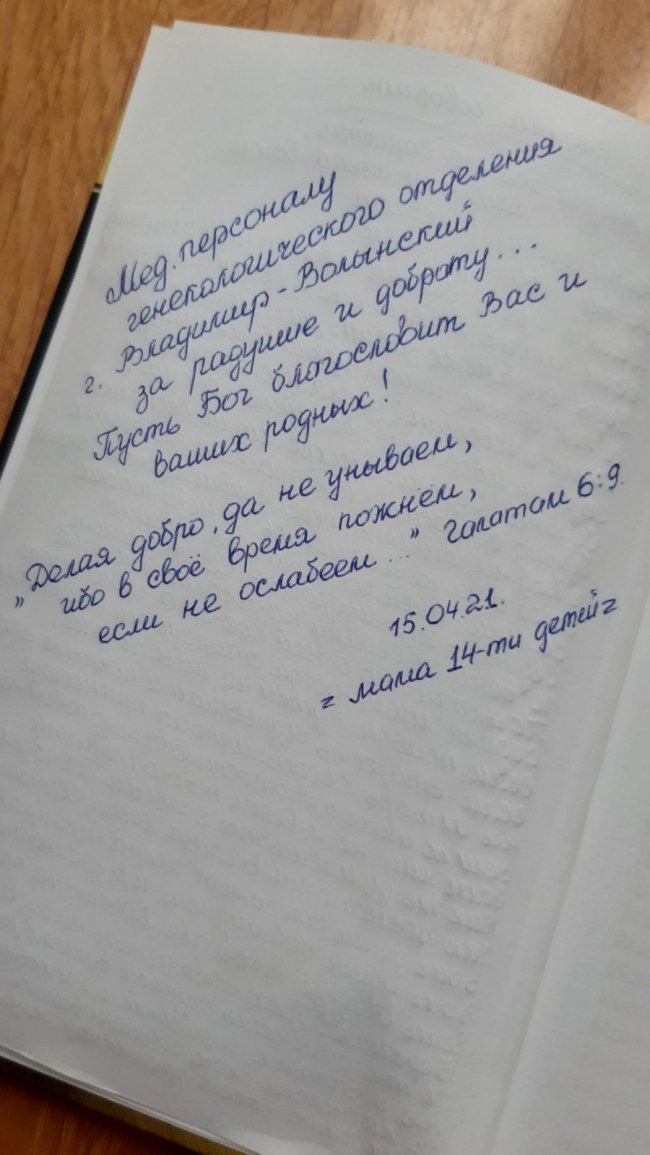 Мед. персоналу
генекологического отделения
г. Владимир-Волынский
за радушие и доброту...
Пусть Бог благословит Вас и
ваших родных!
"Делая добро, да не унываем,
ибо в своё время пожнём,
если не ослабеем..." Галатам 6:9.
15.04.21.
= мама 14-ти детей =